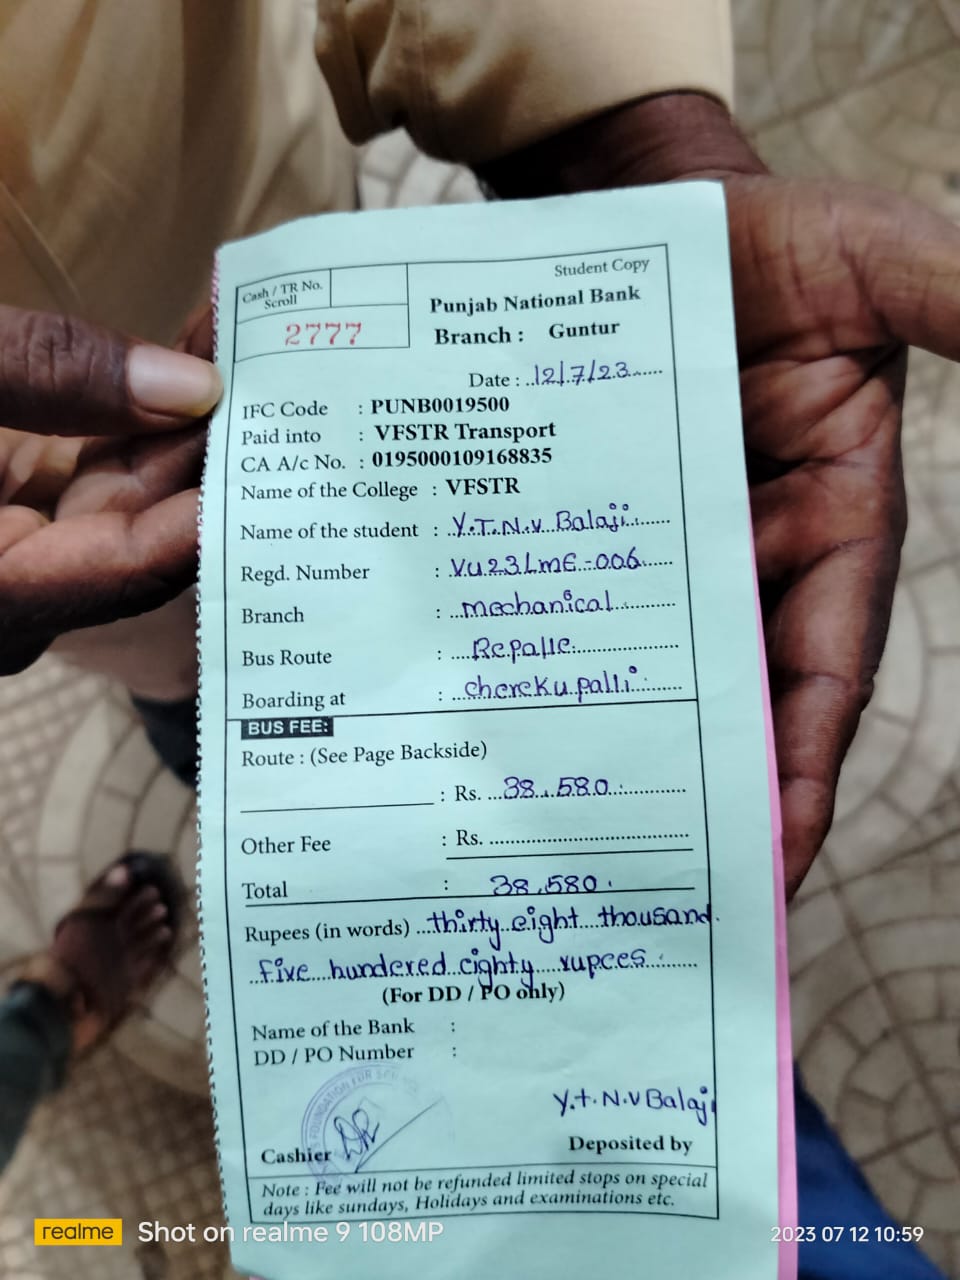 Student Copy
Cash / TR No.
Scroll
2777
Punjab National Bank
Branch : Guntur
Date : 12/7/23
IFC Code : PUNB0019500
Paid into : VFSTR Transport
CA A/c No. : 0195000109168835
Name of the College : VFSTR
Name of the student : Y.T.N.V Balaji
Regd. Number : VU23LME-006
Branch : mechanical
Bus Route : Repalle
Boarding at : cherekupalli
BUS FEE:
Route : (See Page Backside)
: Rs. 38.580
Other Fee : Rs.
Total : 38.580
Rupees (in words) thirty eight thousand
five hundered eighty rupees
(For DD / PO only)
Name of the Bank :
DD / PO Number :
FOUNDATION FOR
Y.t.N.V Balaji
Cashier
Deposited by
Note : Fee will not be refunded limited stops on special
days like sundays, Holidays and examinations etc.
realme Shot on realme 9 108MP
2023 07 12 10:59